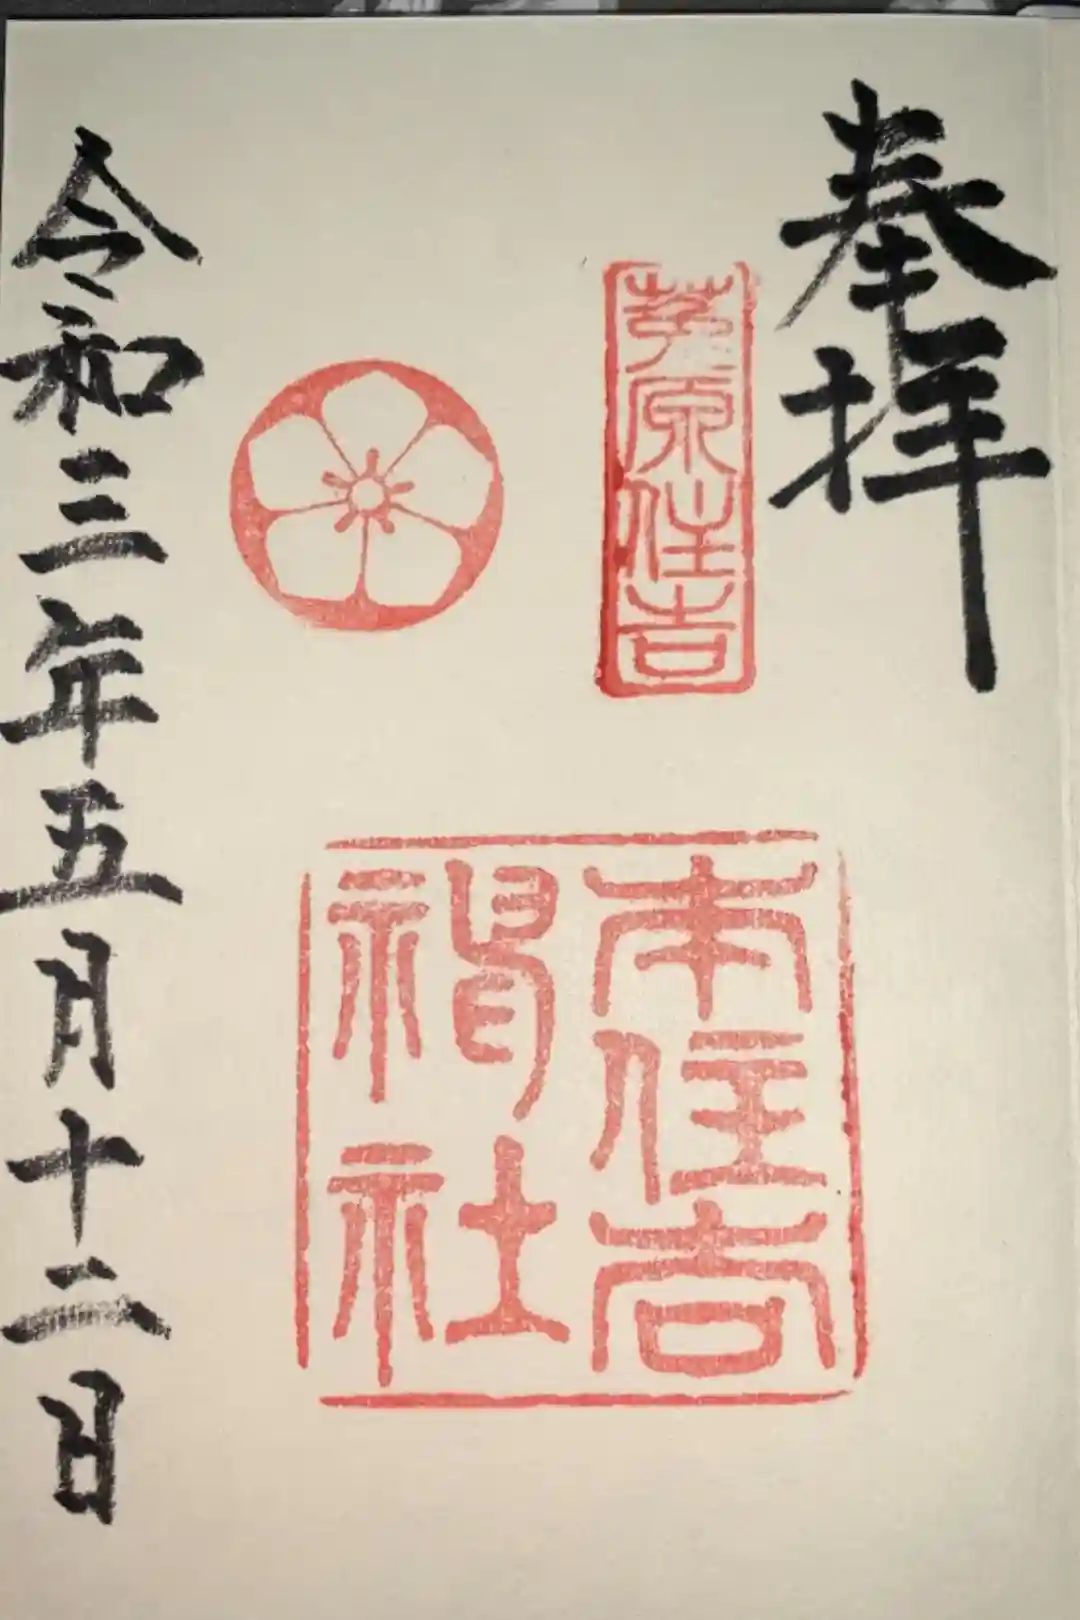 奉拝
莵原住吉
本住吉
神社
令和三年五月十二日